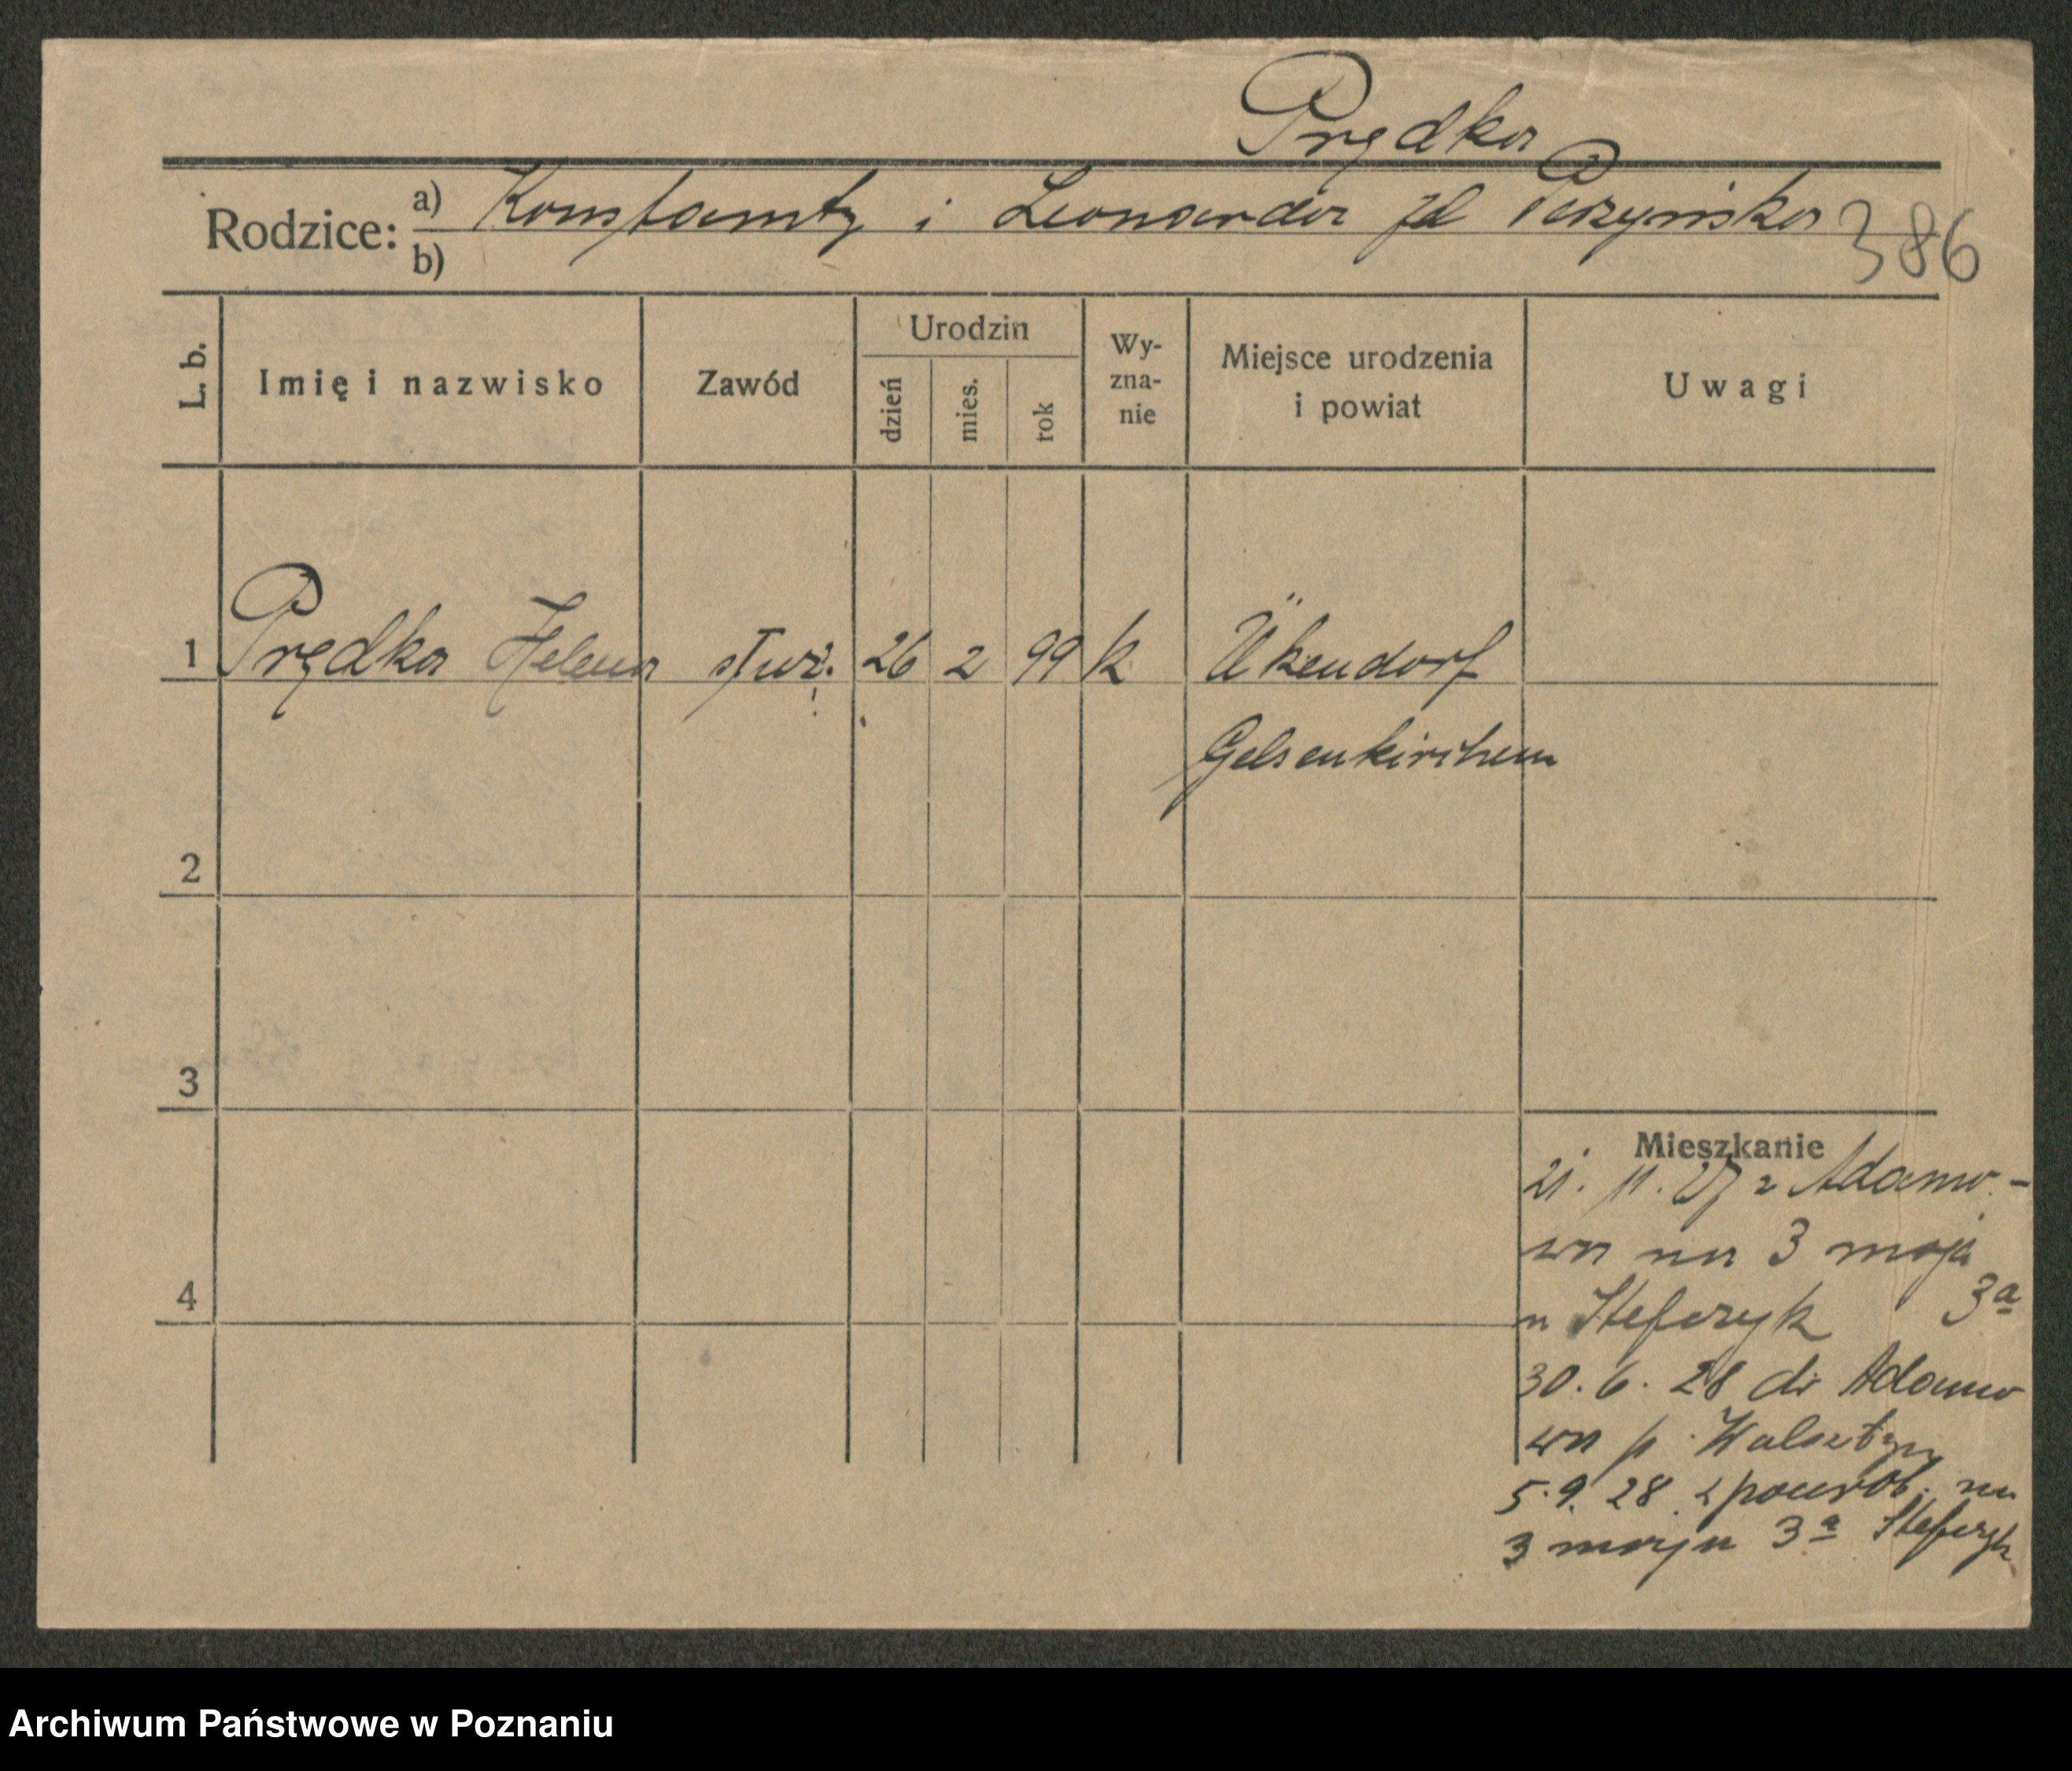 Prędka
Rodzice: a) Konstanty i Leonarda zd Perzyńska
b)
386
L. b. Imię i nazwisko Zawód Urodzin dzień mies. rok Wy-zna-nie Miejsce urodzenia i powiat Uwagi
1 Prędka Helena służ. 26 2 99 k Ükendorf
Gelsenkirchen
2
3
Mieszkanie
21. 11. 27 z Adamo-
wa na 3 maja
4
3a
u Stefczyk
30. 6. 28 do Adamo
wa p. Wolsztyn
5. 9. 28 z powrot. na
3 maja 3a Stefczyk
Archiwum Państwowe w Poznaniu